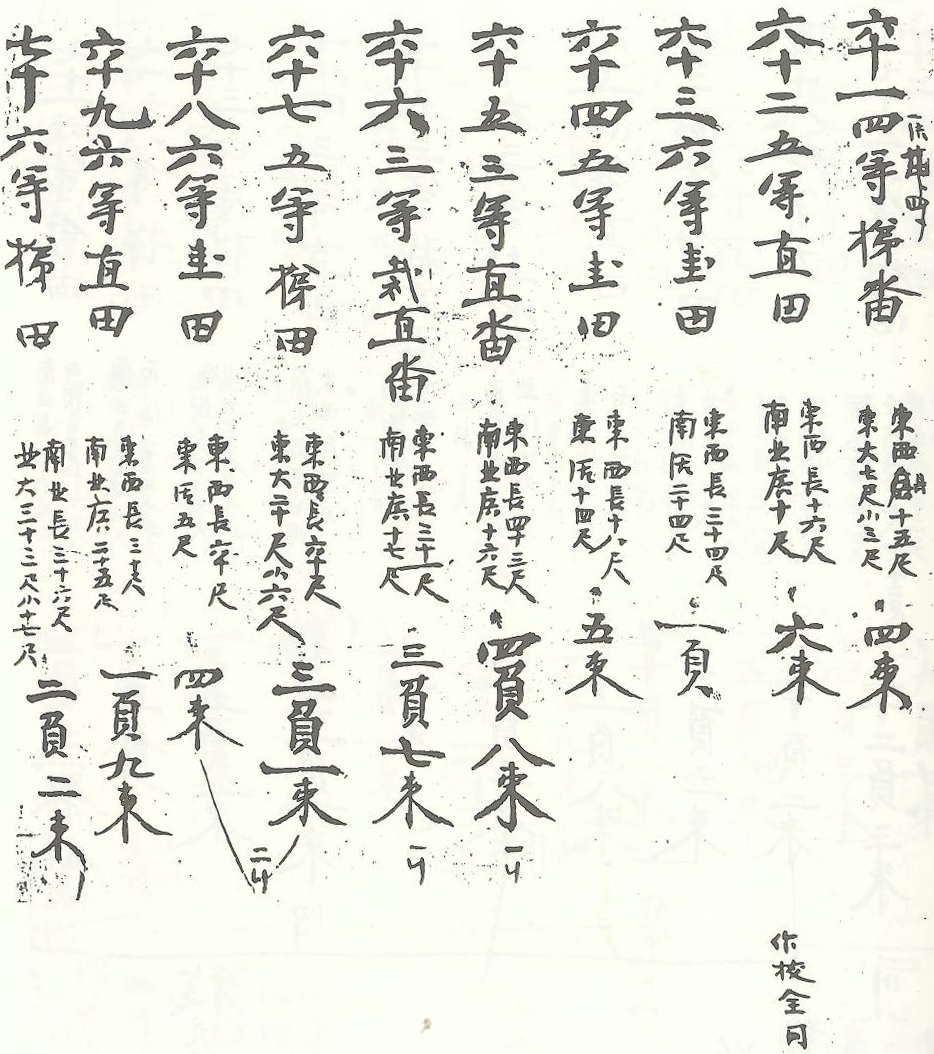 六十一四等梯畓
東西長十五尺
東大七尺小三尺
四束
六十二五等直田
東西長十六尺
南北広十尺
六束
六十三六等圭田
東西長三十四尺
南活二十四尺
一負
六十四五等圭田
東西長十八尺
東活十四尺
五束
六十五三等直畓
東西長四十三尺
南北広十六尺
四負八束
六十六三等裁直畓
東西長三十一尺
南北広十七尺
三負七束
六十七五等梯田
東西長六十尺
東大二十尺小六尺
三負一束
六十八六等圭田
東西長六十尺
東活五尺
四束
六十九六等直田
東西長三十尺
南北広二十五尺
一負九束
七十六等梯田
南北長三十六尺
北大三十三尺小十七尺
二負二束